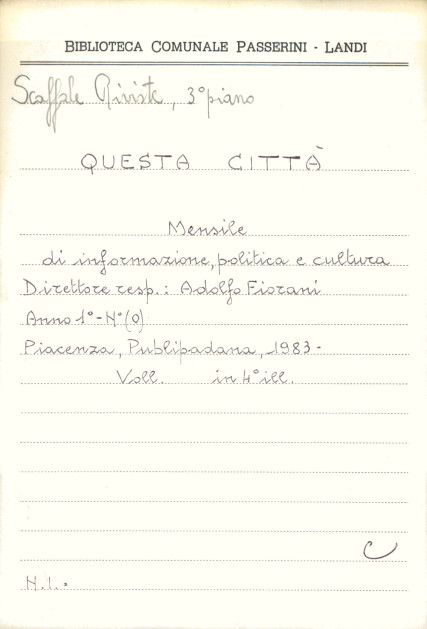 BIBLIOTECA COMUNALE PASSERINI - LANDI
Scaffale Riviste, 3° piano
QUESTA CITTÀ
Mensile
di informazione, politica e cultura
Direttore resp.: Adolfo Fiorani
Anno 1° - N° (0)
Piacenza, Publipadana, 1983 -
Voll. in 4° ill.
C
N.1.=